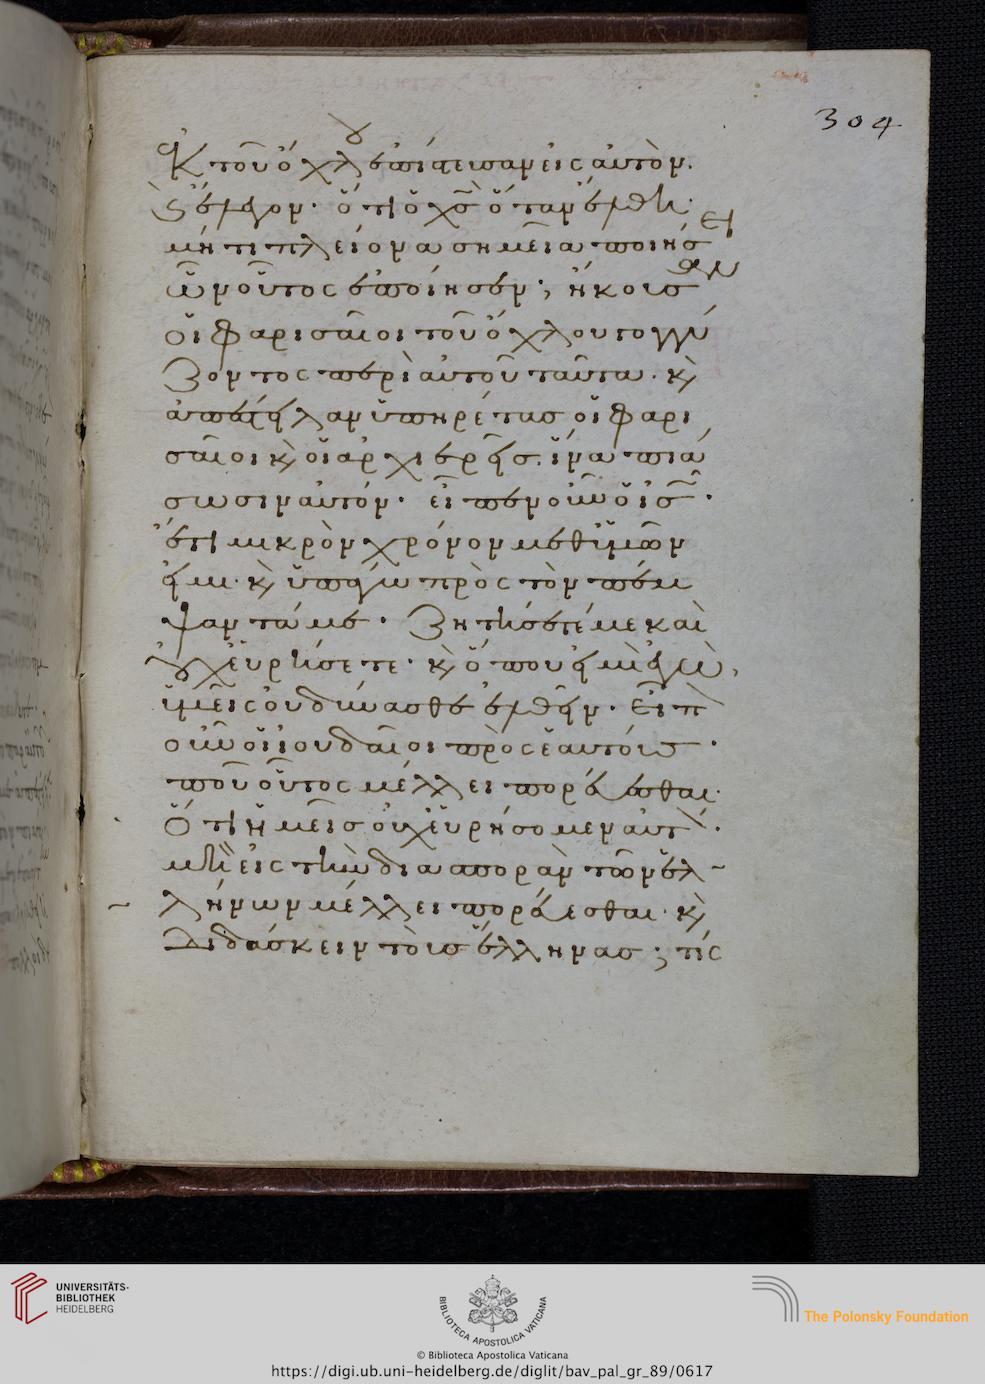 304
κ τοῦ ὄχλου ἐπίστευσαν εἰς αὐτὸν.
καὶ ἔλεγον· ὅτι ὁ χς ὅταν ἔλθη·
μήτι πλείονα σημεῖα ποιήσει
ὧν οὗτος ἐποίησεν; ἤκουσαν
οἱ φαρισαῖοι τοῦ ὄχλου γογγύ
ζοντος περὶ αὐτοῦ ταῦτα. κ
ἀπέστειλαν ὑπηρέτας οἱ φαρι
σαῖοι κ οἱ ἀρχιερεῖς. ἵνα πιά
σωσιν αὐτόν. εἶπεν οὖν ὁ ις.
ἔτι μικρὸν χρόνον μεθ' ὑμῶν
εἰμι. κ ὑπάγω πρὸς τὸν πέμ
ψαντά με. ζητήσετέ με καὶ
οὐχ εὑρήσετε. κ ὅπου εἰμὶ ἐγὼ,
ὑμεῖς οὐ δύνασθε ἐλθεῖν. εἶπον
οὖν οἱ ἰουδαῖοι πρὸς ἑαυτούς.
ποῦ οὗτος μέλλει πορεύεσθαι.
ὅτι ἡμεῖς οὐχ εὑρήσομεν αὐτὸν.
μὴ εἰς τὴν διασπορὰν τῶν ἑλ
λήνων μέλλει πορεύεσθαι. κ
διδάσκειν τοὺς ἕλληνας; τίς
UNIVERSITÄTS-
BIBLIOTHEK
HEIDELBERG
BIBLIOTECA APOSTOLICA VATICANA
The Polonsky Foundation
© Biblioteca Apostolica Vaticana
https://digi.ub.uni-heidelberg.de/diglit/bav_pal_gr_89/0617